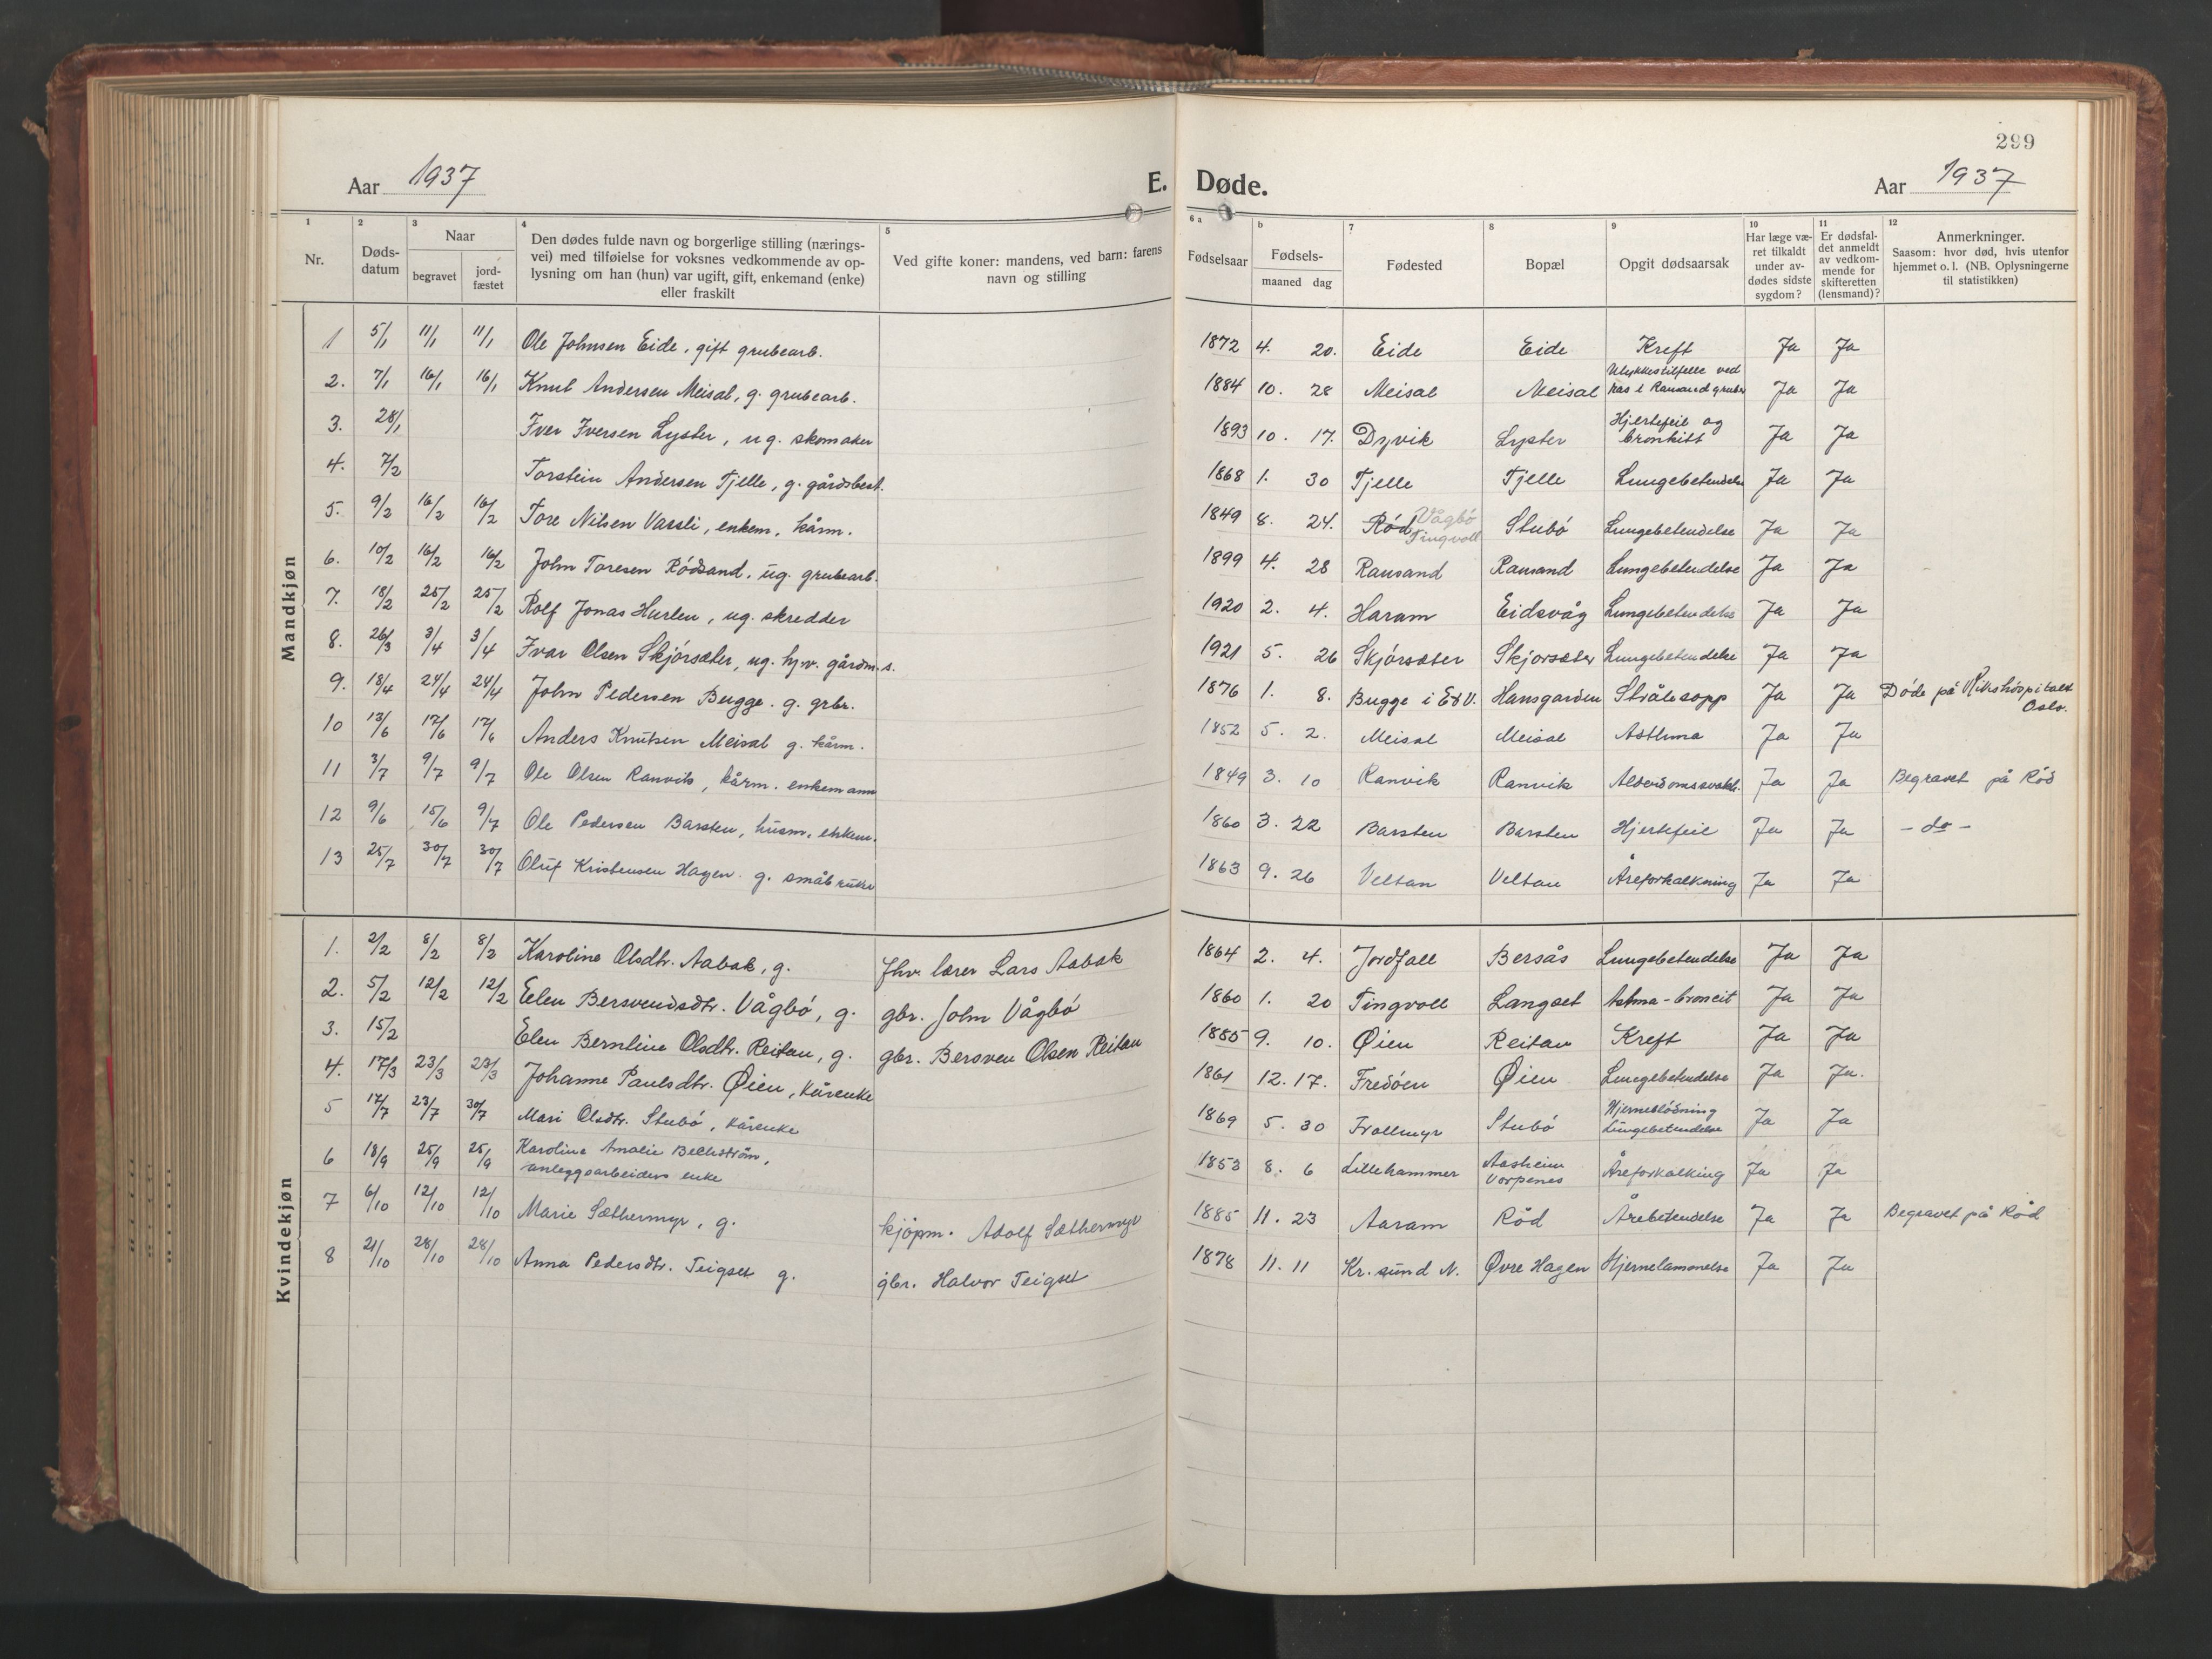 299
Aar 1937
E. Døde.
Aar 1937
1 2 3 4 5 6 a b 7 8 9 10 11 12
Nr.
Døds-
datum
Naar
begravet
jord-
fæstet
Den dødes fulde navn og borgerlige stilling (nærings-
vei) med tilføielse for voksnes vedkommende av op-
lysning om han (hun) var ugift, gift, enkemand (enke)
eller fraskilt
Ved gifte koner: mandens, ved barn: farens
navn og stilling
Fødselsaar
Fødsels-
maaned dag
Fødested
Bopæl
Opgit dødsaarsak
Har læge væ-
ret tilkaldt
under av-
dødes sidste
sygdom?
Er dødsfal-
det anmeldt
av vedkom-
mende for
skifteretten
(lensmand)?
Anmerkninger.
Saasom: hvor død, hvis utenfor
hjemmet o. l. (NB. Oplysningerne
til statistikken)
Mandkjøn
1 5/1 11/1 11/1 Ole Johnsen Eide, gift grubearb. 1872 4. 20. Eide Eide Kreft Ja Ja
2. 7/1 16/1 16/1 Knut Andersen Meisal, g. grubearb. 1884 10. 28 Meisal Meisal Ulykkestilfelle ved
ras i Rausand gruber Ja Ja
3. 28/1 Iver Iversen Lyster, ug. skomaker 1893 10. 17. Dyvik Lyster Hjertefeil og
bronkitt Ja Ja
4. 7/2 Torstein Andersen Tjelle, g. gårdsbest. 1868 1. 30 Tjelle Tjelle Lungebetendelse Ja Ja
5. 9/2 16/2 16/2 Tore Nilsen Vassli, enkem. kårm. 1849 8. 24. Rød Vågbø
Tingvoll Stubø Lungebetendelse Ja Ja
6. 10/2 16/2 16/2 John Toresen Rødsand, ug. grubearb. 1899 4. 28 Rausand Rausand Lungebetendelse Ja Ja
7. 18/2 25/2 25/2 Rolf Jonas Hurlen, ug. skredder 1920 2. 4. Haram Eidsvåg Lungebetendelse Ja Ja
8. 26/3 3/4 3/4 Ivar Olsen Skjørsæter, ug. hjv. gårdm. s. 1921 5. 26 Skjørsæter Skjørsæter Lungebetendelse Ja Ja
9. 18/4 24/4 24/4 John Pedersen Bugge. g. grbr. 1876 1. 8. Bugge i EdV. Hansgarden Strålesopp Ja Ja Døde på Rikshospitalet
Oslo.
10 13/6 17/6 17/6 Anders Knutsen Meisal g. kårm. 1852 5. 2. Meisal Meisal Asthma Ja Ja
11 3/7 9/7 9/7 Ole Olsen Ranvik, kårm. enkemann 1849 3. 10 Ranvik Ranvik Alderdomssvakh. Ja Ja Begravet på Rød
12 9/6 15/6 9/7 Ole Pedersen Barsten, husm. enkem. 1860 3. 22 Barsten Barsten Hjertefeil Ja Ja - do -
13 25/7 30/7 30/7 Oluf Kristensen Hagen. g. småbruker 1863 9. 26 Veltan Veltan Åreforkalkning Ja Ja
Kvindekjøn
1. 2/2 8/2 8/2 Karoline Olsdtr. Aabak, g. fhv. lærer Lars Aabak 1864 2. 4. Jordfall Bersås Lungebetendelse Ja Ja
2. 5/2 12/2 12/2 Eelen Bersvendsdtr. Vågbø, g. gbr. John Vågbø 1860 1. 20 Tingvoll Langset Astma-broncit Ja Ja
3. 15/2 Elen Berntine Olsdtr. Reitan, g. gbr. Bersven Olsen Reitan 1885 9. 10. Øien Reitan Kreft Ja Ja
4. 17/3 23/3 23/3 Johanne Paulsdtr. Øien, kårenke 1861 12. 17. Fredøen Øien Lungebetendelse Ja Ja.
5 17/7 23/7 30/7 Mari Olsdtr. Stubø, kårenke 1869 5. 30 Trollmyr Stubø Hjerneblødning
Lungebetendelse Ja Ja
6 18/9 25/9 25/9 Karoline Amalie Beckström,
anleggsarbeiders enke 1853 8. 6 Lillehammer Aasheim
Vorpenes Åreforkalking Ja Ja
7 6/10 12/10 12/10 Marie Sæthermyr, g. kjøpm. Adolf Sæthermyr 1885 11. 23 Aaram Rød Årebetendelse Ja Ja Begravet på Rød
8 21/10 28/10 28/10 Anna Pedersdtr. Teigset g. gbr. Halvor Teigset 1878 11. 11 Kr. sund N. Øvre Hagen Hjernelammelse Ja Ja